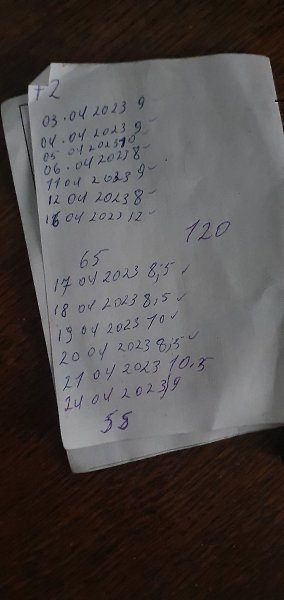 +2
03.04 2023 9
04.04 2023 9
05 04 2023 10
06.04 2023 8
11 04 2023 9
12 04 2023 8
16 04 2023 12
120
65
17 04 2023 8,5
18 04 2023 8,5
19 04 2023 10
20 04 2023 8,5
21 04 2023 10,5
24 04 2023 9
55